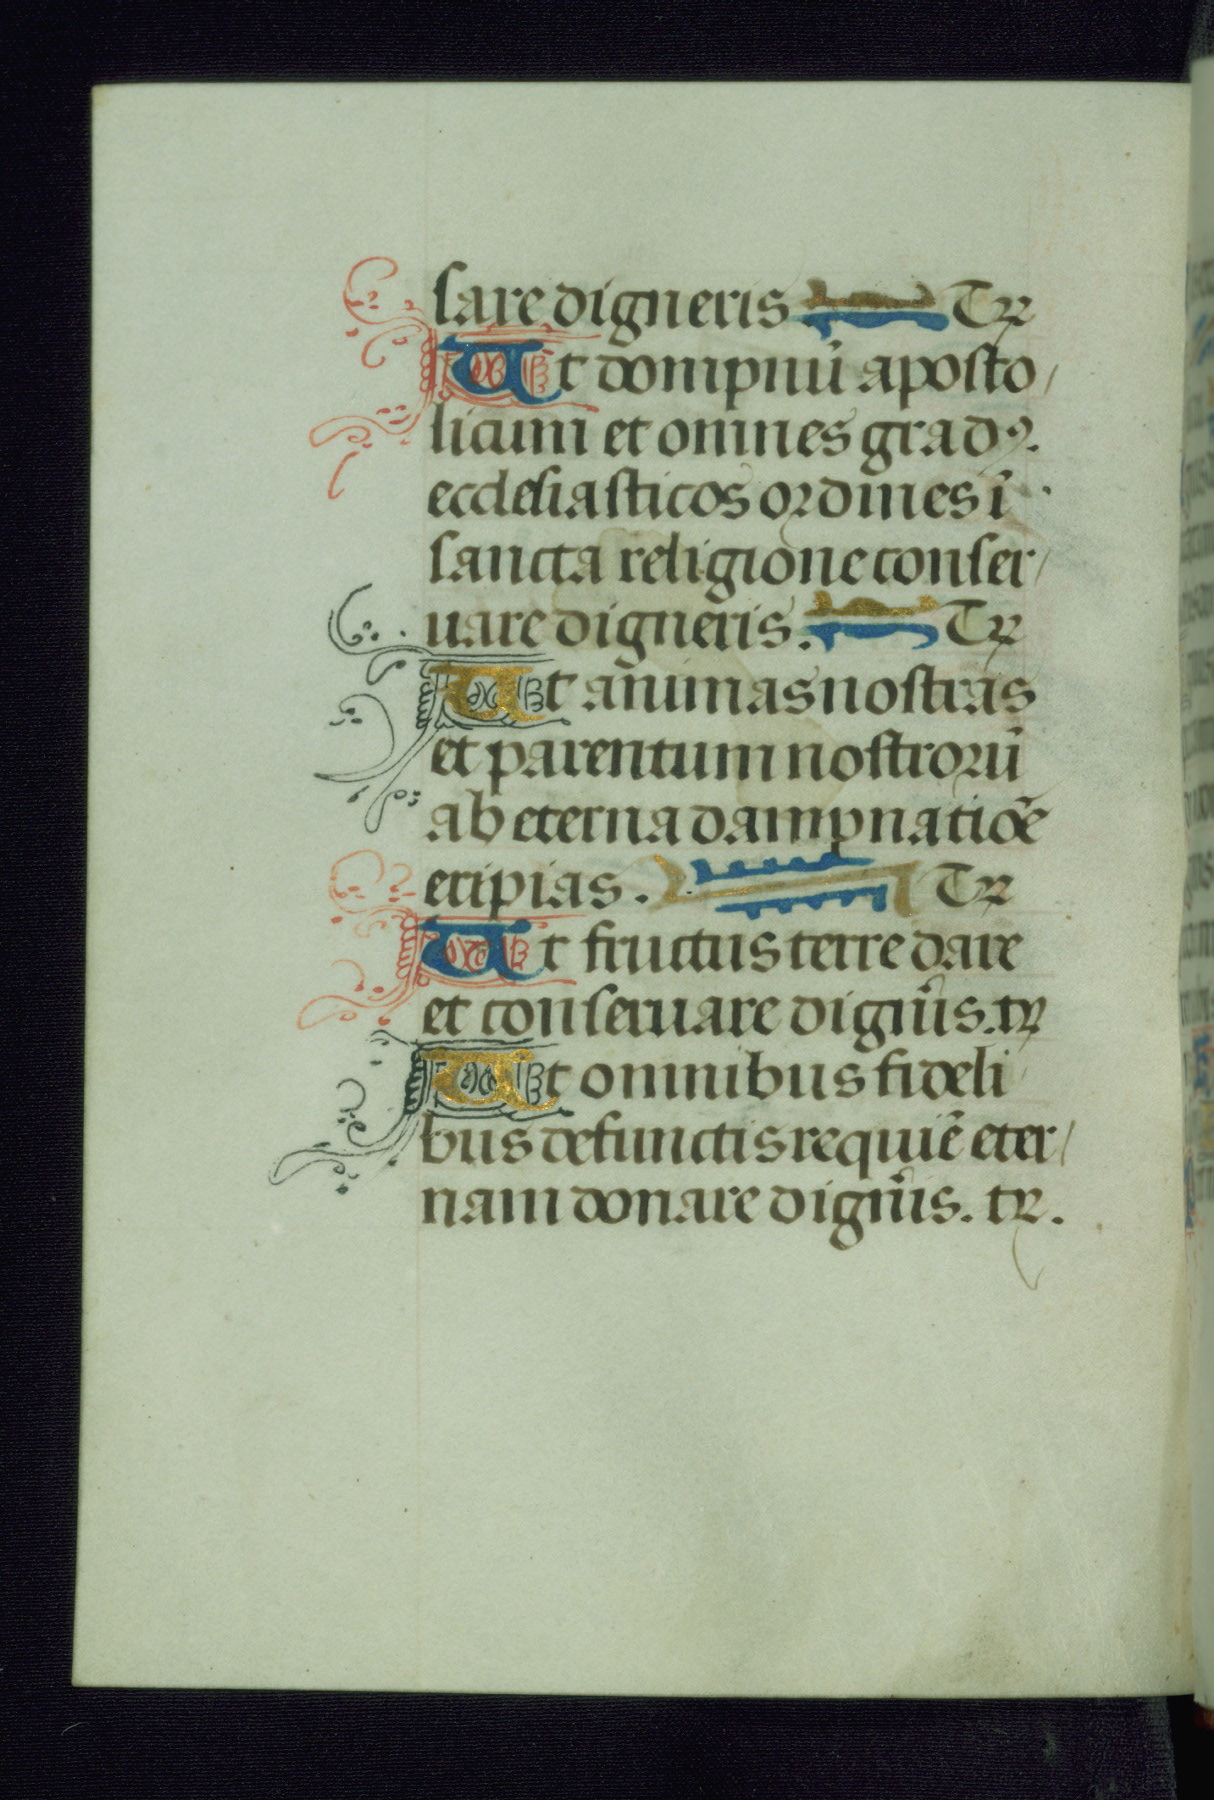 sare digneris Tꝛ
Ut dompnū aposto/
licum et omnes gradꝰ.
ecclesiasticos ordines ī
sancta religione conser/
uare digneris. Tꝛ
Ut animas nostras
et parentum nostroꝛū
ab eterna dampnatiōe
eripias. Tꝛ
Ut fructus terre dare
et conseruare dignis. tꝛ
Ut omnibus fideli
bus defunctis requiē eter/
nam donare dignis. tꝛ.